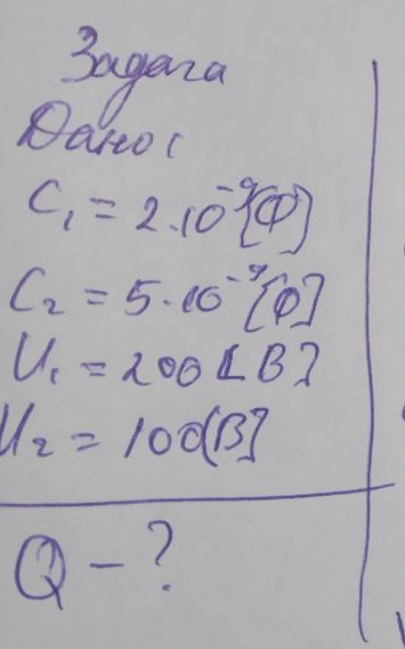 Задача
Дано:
C₁ = 2·10⁻⁹[Ф]
C₂ = 5·10⁻⁹[Ф]
U₁ = 200[В]
U₂ = 100[В]
Q - ?